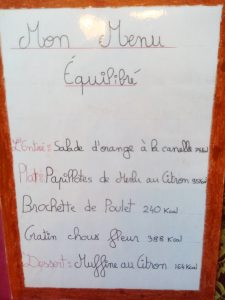 Mon Menu
Équilibré
L'Entrée: Salade d'orange à la canelle
Plat: Papillotes de Merlu au Citron Kcal
Brochette de Poulet 240 Kcal
Gratin choux fleur 388 Kcal
Dessert: Muffins au Citron 164 Kcal